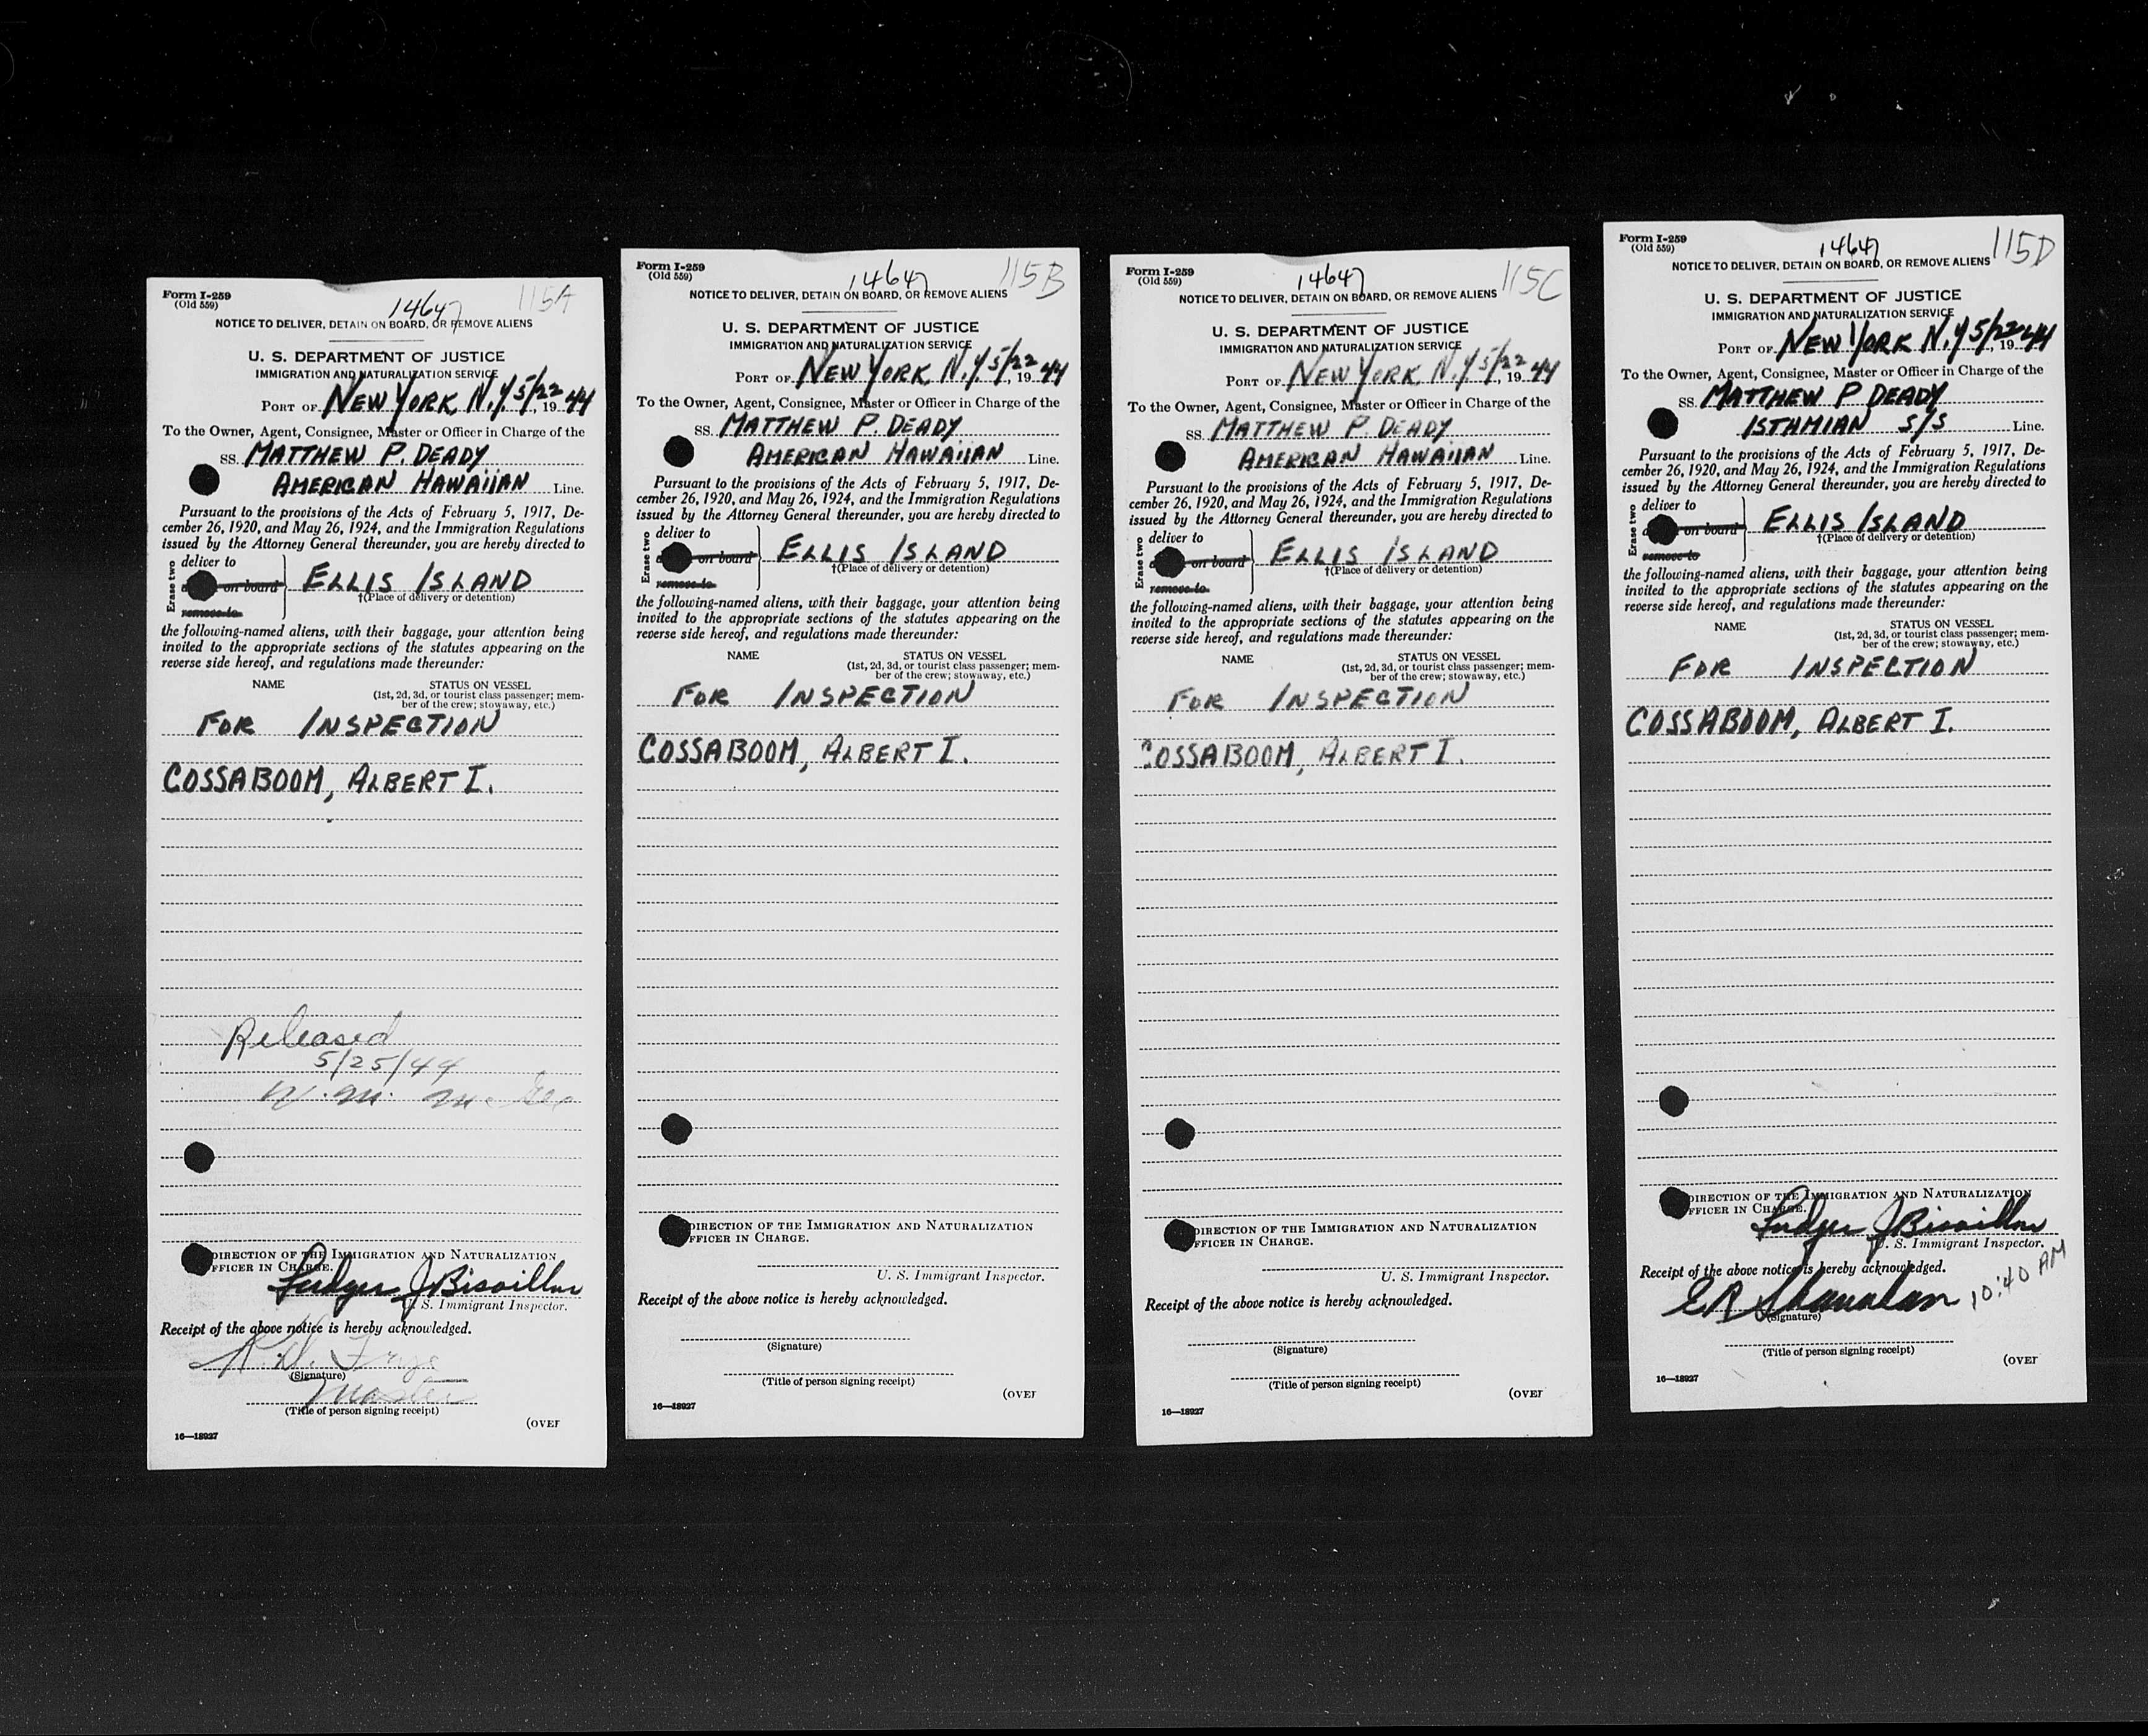 Form I-259
(Old 559)
14647
115A
NOTICE TO DELIVER, DETAIN ON BOARD, OR REMOVE ALIENS
U. S. DEPARTMENT OF JUSTICE
IMMIGRATION AND NATURALIZATION SERVICE
PORT OF NEW YORK, N.Y. 5/22, 1944
To the Owner, Agent, Consignee, Master or Officer in Charge of the
SS. MATTHEW P. DEADY
AMERICAN HAWAIIAN Line.
Pursuant to the provisions of the Acts of February 5, 1917, De-
cember 26, 1920, and May 26, 1924, and the Immigration Regulations
issued by the Attorney General thereunder, you are hereby directed to
Erase two
deliver to
on board
remove to
ELLIS ISLAND
†(Place of delivery or detention)
the following-named aliens, with their baggage, your attention being
invited to the appropriate sections of the statutes appearing on the
reverse side hereof, and regulations made thereunder:
NAME STATUS ON VESSEL
(1st, 2d, 3d, or tourist class passenger; mem-
ber of the crew; stowaway, etc.)
FOR INSPECTION
COSSABOOM, ALBERT I.
Released
5/25/44
DIRECTION OF THE IMMIGRATION AND NATURALIZATION
FFICER IN CHARGE.
U. S. Immigrant Inspector.
Receipt of the above notice is hereby acknowledged.
(Signature)
Master
(Title of person signing receipt)
(OVER
16—18927
Form I-259
(Old 559)
14647
115B
NOTICE TO DELIVER, DETAIN ON BOARD, OR REMOVE ALIENS
U. S. DEPARTMENT OF JUSTICE
IMMIGRATION AND NATURALIZATION SERVICE
PORT OF NEW YORK, N.Y. 5/22, 1944
To the Owner, Agent, Consignee, Master or Officer in Charge of the
SS. MATTHEW P. DEADY
AMERICAN HAWAIIAN Line.
Pursuant to the provisions of the Acts of February 5, 1917, De-
cember 26, 1920, and May 26, 1924, and the Immigration Regulations
issued by the Attorney General thereunder, you are hereby directed to
Erase two
deliver to
on board
remove to
ELLIS ISLAND
†(Place of delivery or detention)
the following-named aliens, with their baggage, your attention being
invited to the appropriate sections of the statutes appearing on the
reverse side hereof, and regulations made thereunder:
NAME STATUS ON VESSEL
(1st, 2d, 3d, or tourist class passenger; mem-
ber of the crew; stowaway, etc.)
FOR INSPECTION
COSSABOOM, ALBERT I.
DIRECTION OF THE IMMIGRATION AND NATURALIZATION
FFICER IN CHARGE.
U. S. Immigrant Inspector.
Receipt of the above notice is hereby acknowledged.
(Signature)
(Title of person signing receipt)
(OVER
16—18927
Form I-259
(Old 559)
14647
115C
NOTICE TO DELIVER, DETAIN ON BOARD, OR REMOVE ALIENS
U. S. DEPARTMENT OF JUSTICE
IMMIGRATION AND NATURALIZATION SERVICE
PORT OF NEW YORK, N.Y. 5/22, 1944
To the Owner, Agent, Consignee, Master or Officer in Charge of the
SS. MATTHEW P. DEADY
AMERICAN HAWAIIAN Line.
Pursuant to the provisions of the Acts of February 5, 1917, De-
cember 26, 1920, and May 26, 1924, and the Immigration Regulations
issued by the Attorney General thereunder, you are hereby directed to
Erase two
deliver to
on board
remove to
ELLIS ISLAND
†(Place of delivery or detention)
the following-named aliens, with their baggage, your attention being
invited to the appropriate sections of the statutes appearing on the
reverse side hereof, and regulations made thereunder:
NAME STATUS ON VESSEL
(1st, 2d, 3d, or tourist class passenger; mem-
ber of the crew; stowaway, etc.)
FOR INSPECTION
COSSABOOM, ALBERT I.
DIRECTION OF THE IMMIGRATION AND NATURALIZATION
FFICER IN CHARGE.
U. S. Immigrant Inspector.
Receipt of the above notice is hereby acknowledged.
(Signature)
(Title of person signing receipt)
(OVER
16—18927
Form I-259
(Old 559)
14647
115D
NOTICE TO DELIVER, DETAIN ON BOARD, OR REMOVE ALIENS
U. S. DEPARTMENT OF JUSTICE
IMMIGRATION AND NATURALIZATION SERVICE
PORT OF NEW YORK N.Y 5/22, 1944
To the Owner, Agent, Consignee, Master or Officer in Charge of the
SS. MATTHEW P DEADY
ISTHMIAN S/S Line.
Pursuant to the provisions of the Acts of February 5, 1917, De-
cember 26, 1920, and May 26, 1924, and the Immigration Regulations
issued by the Attorney General thereunder, you are hereby directed to
Erase two
deliver to
on board
remove to
ELLIS ISLAND
†(Place of delivery or detention)
the following-named aliens, with their baggage, your attention being
invited to the appropriate sections of the statutes appearing on the
reverse side hereof, and regulations made thereunder:
NAME STATUS ON VESSEL
(1st, 2d, 3d, or tourist class passenger; mem-
ber of the crew; stowaway, etc.)
FOR INSPECTION
COSSABOOM, ALBERT I.
DIRECTION OF THE IMMIGRATION AND NATURALIZATION
FFICER IN CHARGE.
U. S. Immigrant Inspector.
Receipt of the above notice is hereby acknowledged.
10:40 AM
(Signature)
(Title of person signing receipt)
(OVER
16—18927